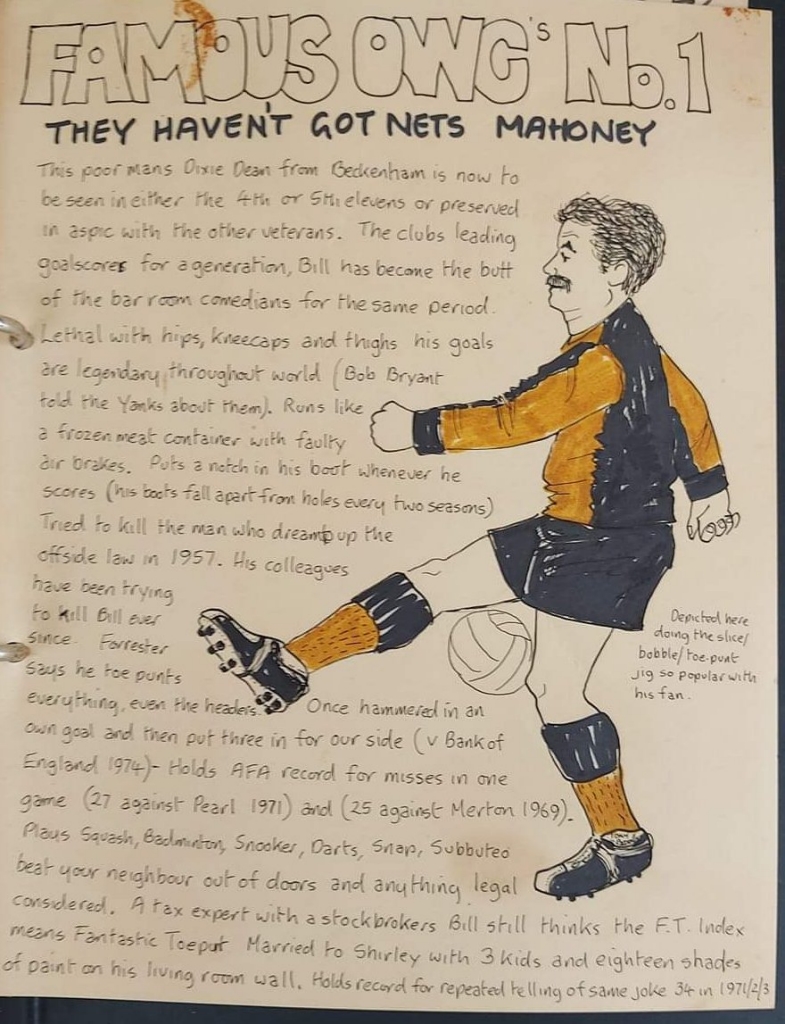 FAMOUS OWC's No.1
THEY HAVEN'T GOT NETS MAHONEY
This poor mans Dixie Dean from Beckenham is now to
be seen in either the 4th or 5th elevens or preserved
in aspic with the other veterans. The clubs leading
goalscorer for a generation, Bill has become the butt
of the bar room comedians for the same period.
Lethal with hips, kneecaps and thighs his goals
are legendary throughout world (Bob Bryant
told the Yanks about them). Runs like
a frozen meat container with faulty
air brakes. Puts a notch in his boot whenever he
scores (his boots fall apart from holes every two seasons)
Tried to kill the man who dreamt up the
offside law in 1957. His colleagues
have been trying
to kill Bill ever
since. Forrester
says he toe punts
everything, even the headers. Once hammered in an
own goal and then put three in for our side (v Bank of
England 1974)- Holds AFA record for misses in one
game (27 against Pearl 1971) and (25 against Merton 1969).
Plays Squash, Badminton, Snooker, Darts, Snap, Subbuteo
beat your neighbour out of doors and anything legal
considered. A tax expert with a stockbrokers Bill still thinks the F.T. Index
means Fantastic Toeput Married to Shirley with 3 kids and eighteen shades
of paint on his living room wall. Holds record for repeated telling of same joke 34 in 1971/2/3
Depicted here
doing the slice/
bobble/toe-punt
jig so popular with
his fan.